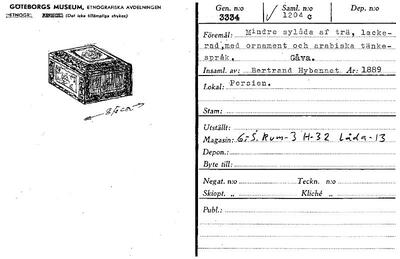 GÖTEBORGS MUSEUM, ETNOGRAFISKA AVDELNINGEN
(Det icke tillämpliga strykes)
Gen. n:o Saml. n:o Dep. n:o
3334 1204 c
Föremål: Mindre sylåda af trä, lacke-
rad, med ornament och arabiska tänke-
språk. Gåva.
Insaml. av: Bertrand Hybennet År: 1889
Lokal: Persien.
Stam:
Utställt:
Magasin: G.S. Rum-3 H-32 Låda-13
Depon.:
Byte till:
Negat. n:o Teckn. n:o
Skiopt. „ Kliché „
Publ.: